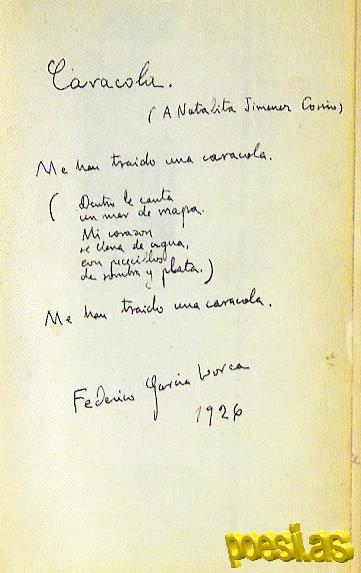 Caracola.
(A Natalita Jimenez Cossio)
Me han traido una caracola.
( Dentro le canta
un mar de mapa.
Mi corazon
se llena de agua,
con pececillos
de sombra y plata.)
Me han traido una caracola.
Federico García Lorca
1926
poesi.as